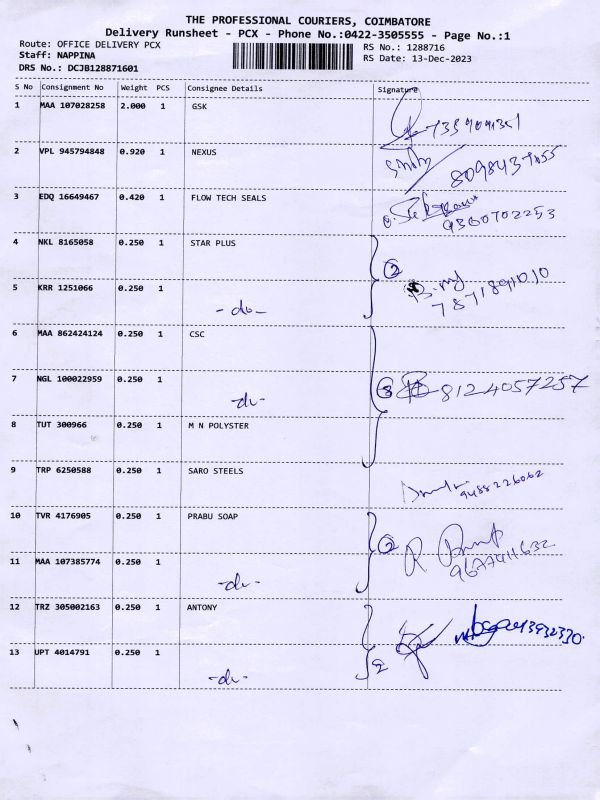 THE PROFESSIONAL COURIERS, COIMBATORE
Delivery Runsheet - PCX - Phone No.:0422-3505555 - Page No.:1
Route: OFFICE DELIVERY PCX
RS No.: 1288716
Staff: NAPPINA
RS Date: 13-Dec-2023
DRS No.: DCJB128871601
S No Consignment No Weight PCS Consignee Details Signature
1 MAA 107028258 2.000 1 GSK
2 VPL 945794848 0.920 1 NEXUS
3 EDQ 16649467 0.420 1 FLOW TECH SEALS
9360702253
4 NKL 8165058 0.250 1 STAR PLUS
2
5 KRR 1251066 0.250 1 -do-
7871891010
6 MAA 862424124 0.250 1 CSC
7 NGL 100022959 0.250 1 -do-
3 8124057257
8 TUT 300966 0.250 1 M N POLYSTER
9 TRP 6250588 0.250 1 SARO STEELS
9488226062
10 TVR 4176905 0.250 1 PRABU SOAP
2
11 MAA 107385774 0.250 1 -do-
12 TRZ 305002163 0.250 1 ANTONY
13 UPT 4014791 0.250 1 -do-
2